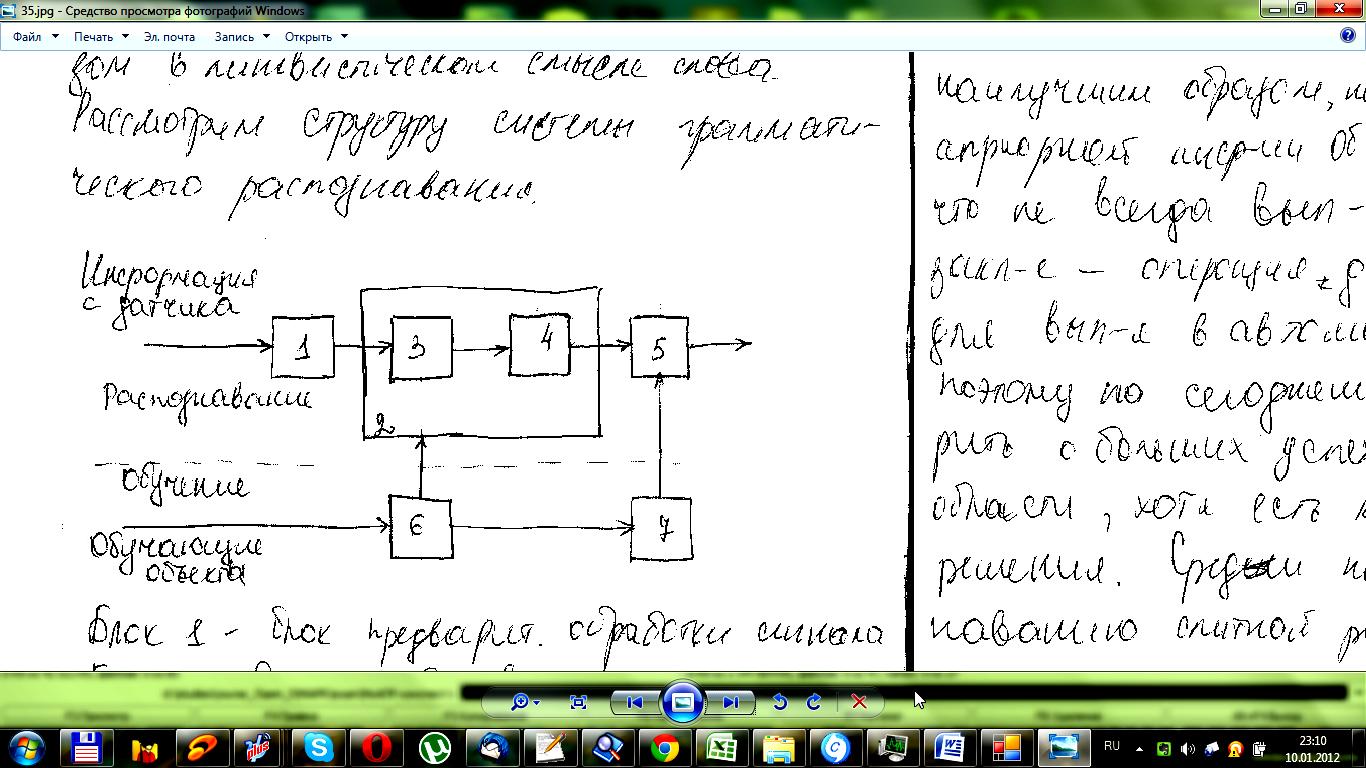 35.jpg - Средство просмотра фотографий Windows
Файл Печать Эл. почта Запись Открыть
дом в лингвистическом смысле слова.
Рассмотрим структуру системы граммати-
ческого распознавания.
Информация
с датчика
1 3 4 5
Распознавание
2
Обучение
6 7
Обучающие
объекта
Блок 1 - блок предварит. обработки сигнала
наилучшим образом,
априорной
что не всегда вып-
закл-е - операция,
для вып-я в
поэтому по
рить о больших
области, хотя есть
решения.
слитной
RU
23:10
10.01.2012